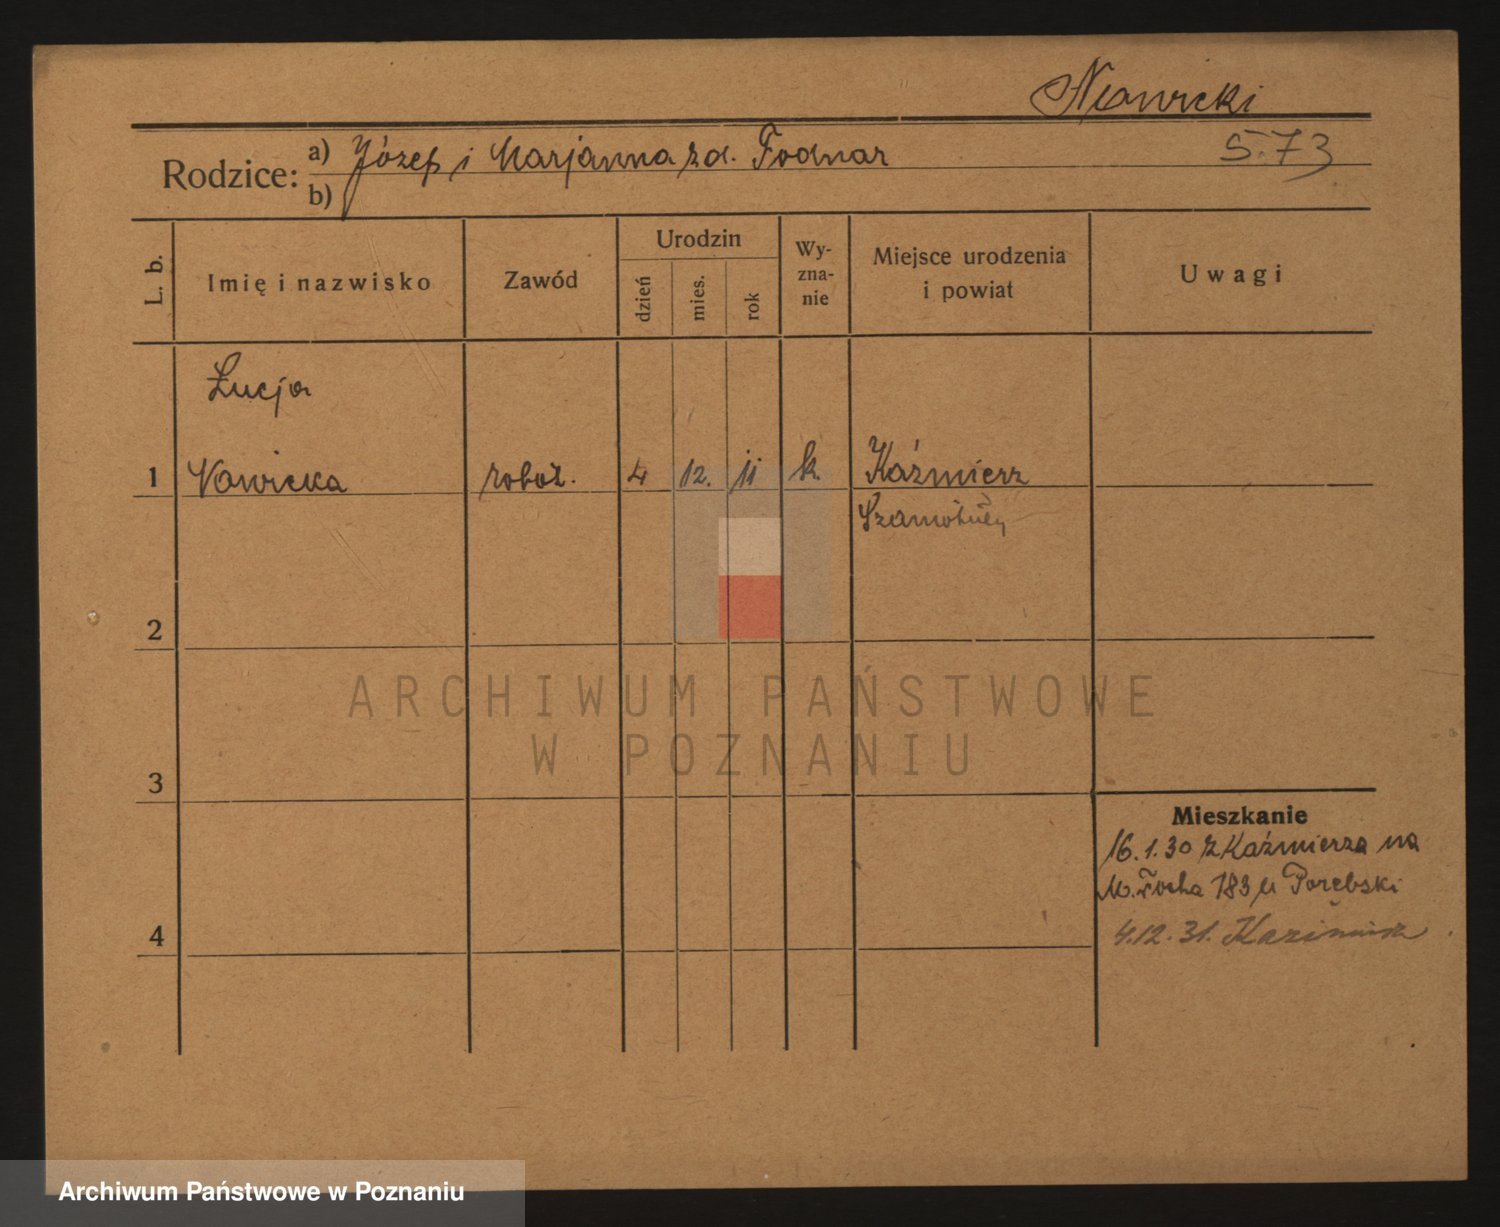 Nowicki
Rodzice: a) Józef i Marjanna zd. Fodnar 5.73
b)
L. b. Imię i nazwisko Zawód Urodzin dzień mies. rok Wy-zna-nie Miejsce urodzenia i powiat Uwagi
Łucja
1 Nowicka robot. 4 12. 11 k. Kaźmierz
Szamotuły
2
ARCHIWUM PAŃSTWOWE
W POZNANIU
3
Mieszkanie
16.1.30 z Kaźmierza na
M. Focha 183 u Porębski
4
4.12.31. Kazimierz
Archiwum Państwowe w Poznaniu